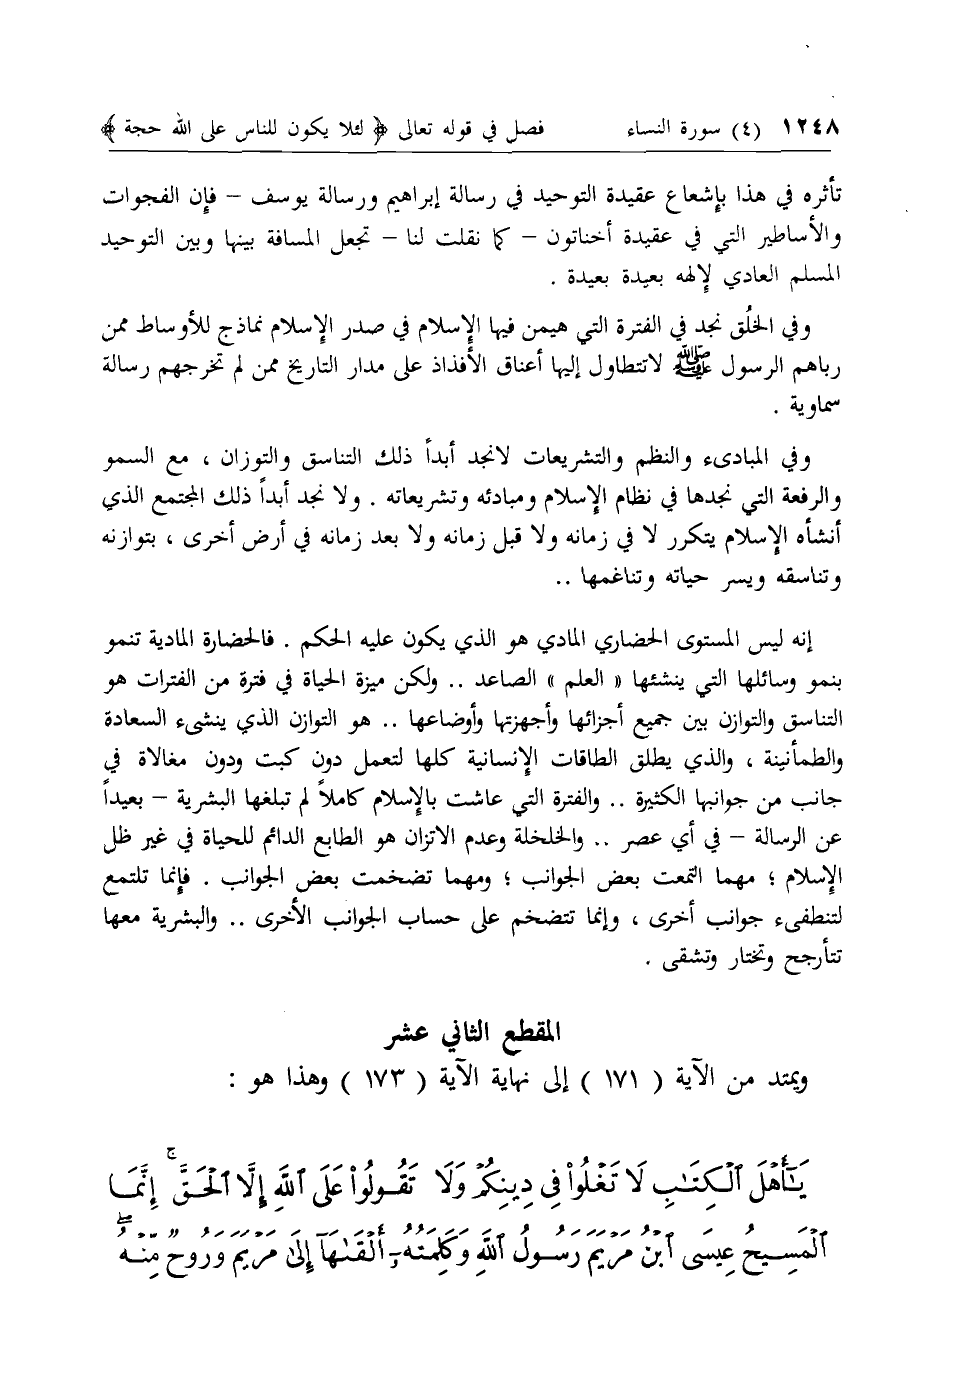 ١٢٤٨ (٤) سورة النساء فصل في قوله تعالى ﴿ لئلا يكون للناس على الله حجة ﴾
تأثره في هذا بإشعاع عقيدة التوحيد في رسالة إبراهيم ورسالة يوسف – فإن الفجوات
والأساطير التي في عقيدة أخناتون – كما نقلت لنا – تجعل المسافة بينها وبين التوحيد
المسلم العادي لإلهه بعيدة بعيدة .
وفي الخلُق نجد في الفترة التي هيمن فيها الإسلام في صدر الإسلام نماذج للأوساط ممن
رباهم الرسول ﷺ لاتتطاول إليها أعناق الأفذاذ على مدار التاريخ ممن لم تخرجهم رسالة
سماوية .
وفي المبادىء والنظم والتشريعات لانجد أبداً ذلك التناسق والتوزان ، مع السمو
والرفعة التي نجدها في نظام الإسلام ومبادئه وتشريعاته . ولا نجد أبداً ذلك المجتمع الذي
أنشأه الإسلام يتكرر لا في زمانه ولا قبل زمانه ولا بعد زمانه في أرض أخرى ، بتوازنه
وتناسقه ويسر حياته وتناغمها ..
إنه ليس المستوى الحضاري المادي هو الذي يكون عليه الحكم . فالحضارة المادية تنمو
بنمو وسائلها التي ينشئها « العلم » الصاعد .. ولكن ميزة الحياة في فترة من الفترات هو
التناسق والتوازن بين جميع أجزائها وأجهزتها وأوضاعها .. هو التوازن الذي ينشىء السعادة
والطمأنينة ، والذي يطلق الطاقات الإنسانية كلها لتعمل دون كبت ودون مغالاة في
جانب من جوانبها الكثيرة .. والفترة التي عاشت بالإسلام كاملاً لم تبلغها البشرية – بعيداً
عن الرسالة – في أي عصر .. والخلخلة وعدم الاتزان هو الطابع الدائم للحياة في غير ظل
الإسلام ؛ مهما التمعت بعض الجوانب ؛ ومهما تضخمت بعض الجوانب . فإنما تلتمع
لتنطفىء جوانب أخرى ، وإنما تتضخم على حساب الجوانب الأخرى .. والبشرية معها
تتأرجح وتختار وتشقى .
المقطع الثاني عشر
ويمتد من الآية ( ١٧١ ) إلى نهاية الآية ( ١٧٣ ) وهذا هو :
يَـٰٓأَهْلَ ٱلْكِتَـٰبِ لَا تَغْلُوا۟ فِى دِينِكُمْ وَلَا تَقُولُوا۟ عَلَى ٱللَّهِ إِلَّا ٱلْحَقَّ ۚ إِنَّمَا
ٱلْمَسِيحُ عِيسَى ٱبْنُ مَرْيَمَ رَسُولُ ٱللَّهِ وَكَلِمَتُهُۥٓ أَلْقَىٰهَآ إِلَىٰ مَرْيَمَ وَرُوحٌ مِّنْهُ ۖ